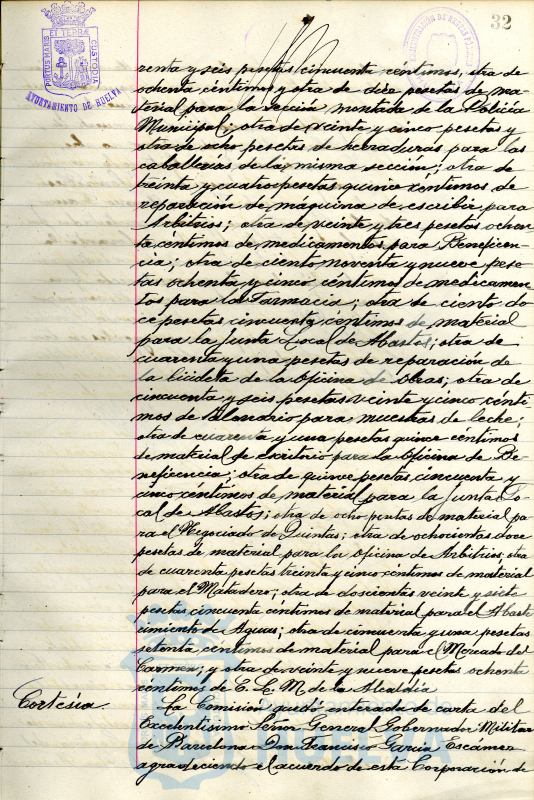 32
PORTUS MARIS ET TERRÆ CUSTODIA
AYUNTAMIENTO DE HUELVA
renta y seis pesetas cincuenta céntimos, otra de
ochenta céntimos y otra de diez pesetas de ma-
terial para la sección montada de la Policía
Municipal; otra de veinte y cinco pesetas y
otra de ocho pesetas de herraduras para las
caballerías de la misma sección; otra de
treinta y cuatro pesetas quince céntimos de
reparación de máquina de escribir para
Arbitrios; otra de veinte y tres pesetas ochen-
ta céntimos de medicamentos para Beneficen-
cia; otra de ciento noventa y nueve pese-
tas ochenta y cinco céntimos de medicamen-
tos para la Farmacia; otra de ciento do-
ce pesetas cincuenta céntimos de material
para la Junta Local de Abastos; otra de
cuarenta y una pesetas de reparación de
la bicicleta de la Oficina de Obras; otra de
cincuenta y seis pesetas veinte y cinco cénti-
mos de talonario para muestras de leche;
otra de cuarenta y una pesetas quince céntimos
de material de escritorio para la Oficina de Be-
neficencia; otra de quince pesetas cincuenta y
cinco céntimos de material para la Junta Lo-
cal de Abastos; otra de ocho pesetas de material pa-
ra el Negociado de Quintas; otra de ochocientas doce
pesetas de material para la Oficina de Arbitrios, otra
de cuarenta pesetas treinta y cinco céntimos de material
para el Matadero; otra de doscientas veinte y siete
pesetas cincuenta céntimos de material para el Abaste-
cimiento de Aguas; otra de cincuenta y una pesetas
setenta céntimos de material para el Mercado del
Carmen; y otra de veinte y nueve pesetas ochenta
céntimos de C. L. M. de la Alcaldía
Cortesía. La Comisión quedó enterada de carta del
Excelentísimo Señor General Gobernador Militar
de Barcelona Don Francisco García Escámez
agradeciendo el acuerdo de esta Corporación de